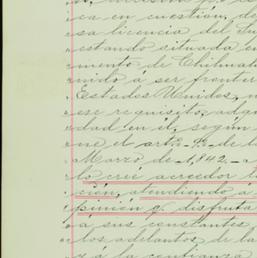 ca en cuestión, de
sa licencia del Su
estando situada en
mento de Chihuah
nido á ser fronter
Estados Unidos, n
ese requisito, adqu
dad en él, según
ne el artº 92 de
Marzo de 1842 - a
lo creé acreedor
ción, atendiendo a
pinión q. disfruta
á sus constantes
los adelantos de la
y á la confianza